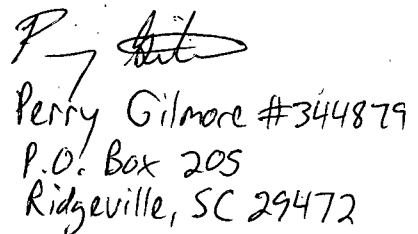 Perry Gilmore #344879
P.O. Box 205
Ridgeville, SC 29472